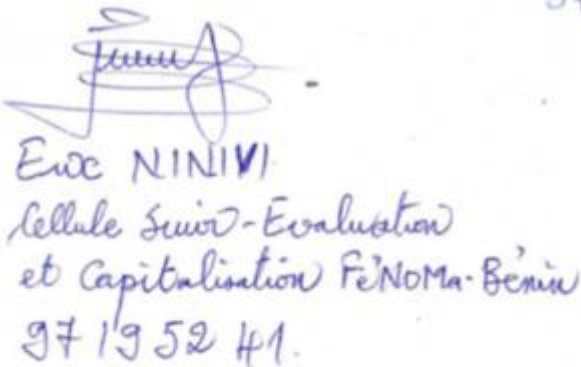 Eric NINIVI
Cellule Suivi-Evaluation
et Capitalisation FéNOMa-Bénin
97 19 52 41.